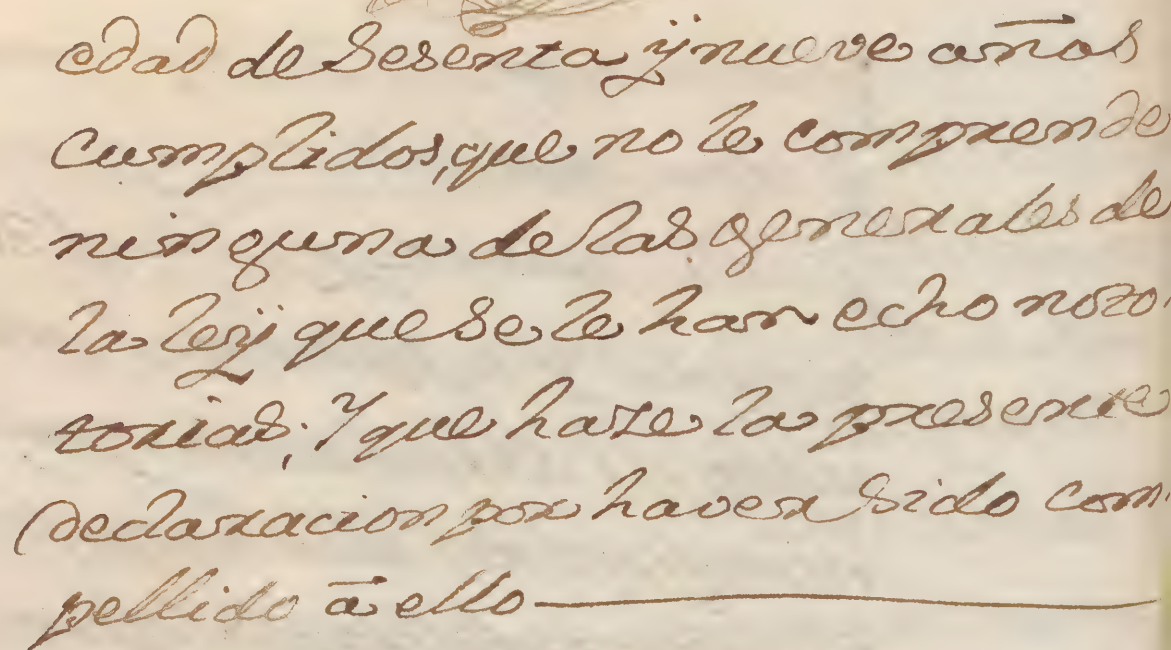 edad de Sesenta ÿ nueve años
Cumplidos, que no le comprende
ninguna de las generales de
la leÿ que se le han echo noto
torias; Y que haze la presente
declaracion por haver sido com
pellido â ello